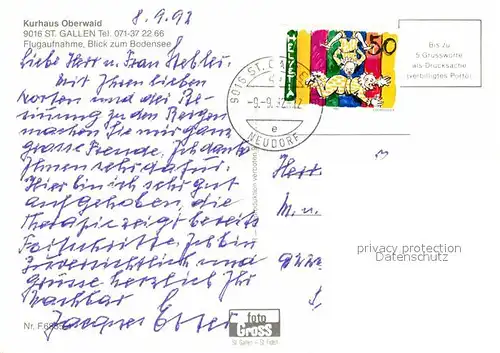 8.9.92
Kurhaus Oberwaid
9016 ST. GALLEN Tel. 071-37 22 66
Flugaufnahme, Blick zum Bodensee
Liebe Herr u. Frau
Mit Ihren lieben
Worten und der
zu den Bergen
machen Sie mir ganz
grosse Freude. Ich danke
Ihnen sehr dafür.
Hier bin ich sehr gut
aufgehoben, die
Therapie zeigt bereits
Fortschritte. Ich bin
zuversichtlich und
grüsse herzlich Ihr
Nachbar
Jacques
Nr. F.
HELVETIA
50
9016 ST. GALLEN
-9.-9.92
e
NEUDORF
Bis zu
5 Grussworte
als Drucksache
(verbilligtes Porto)
Reproduktion verboten
Herr
M. u.
privacy protection
Datenschutz
foto
Gross
St. Gallen - St. Fiden